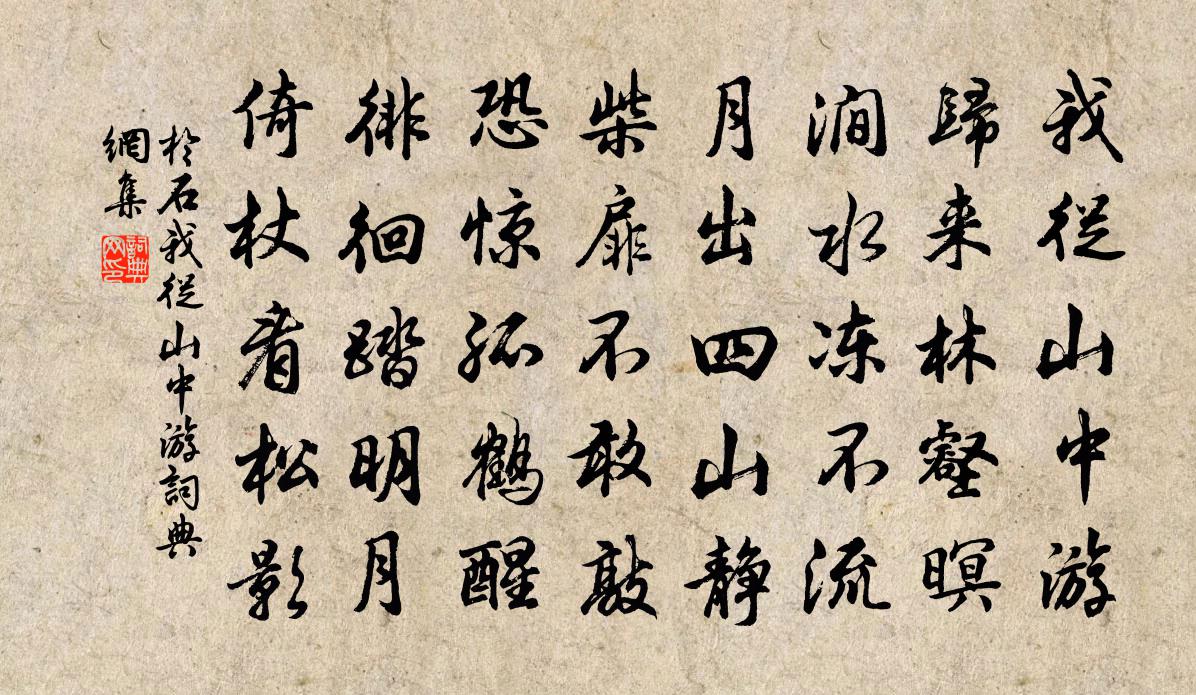 我從山中游
歸来林壑暝
澗水冻不流
月出四山静
柴扉不敢敲
恐惊孤鶴醒
徘徊踏明月
倚杖看松影
於石我從山中游詞典
網集
詞典网印